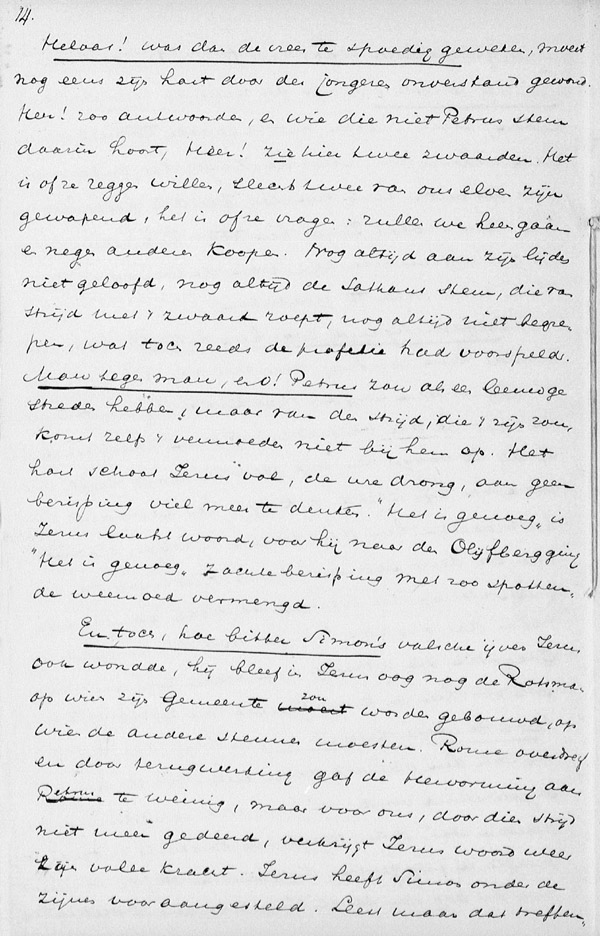 14.
Helaas! was dan de vrees te spoedig geweken, moest
nog eens zijn hart door der jongeren onverstand gewond.
Heer! zoo antwoorden, en wie die niet Petrus stem
daarin hoort, Heer! zie hier twee zwaarden. Het
is ofze zeggen willen, slechts twee van ons elven zijn
gewapend, het is ofze vragen: zullen we heengaan
en negen anderen koopen. Nog altijd aan zijn lijden
niet geloofd, nog altijd de Satans stem, die van
strijd met 't zwaard roept, nog altijd niet begre
pen, wat toch reeds de profetie had voorspeld.
Man tegen man, en O! Petrus zou als een leeuw ge
streden hebben, maar van den strijd, die 't zijn zou,
komt zelfs 't vermoeden niet bij hem op. Het
hart schoot Jezus vol, de ure drong, aan geen
berisping viel meer te denken. "Het is genoeg" is
Jezus laatst woord, voor hij naar den Olijfberg ging
"Het is genoeg" zachte berisping met zoo spotten-
de weemoed vermengd.
En toch, hoe bitter Simon's valsche ijver Jezus
ook wondde, hij bleef in Jezus oog nog de Rotsman
op wien zijn Gemeente zou worden gebouwd, op
wien de andere steunen moesten. Rome overdreef
en door terugwerking gaf de Hervorming aan
Petrus te weinig, maar voor ons, door dien strijd
niet meer gedeerd, verkrijgt Jezus woord weer
zijn volle kracht. Jezus heeft Simon onder de
zijnen voor aangesteld. Leest maar dat treffen-